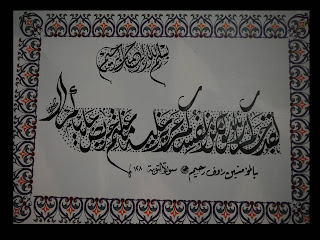 بسم الله الرحمن الرحيم
لقد جاءكم رسول من أنفسكم عزيز عليه ما عنتم حريص عليكم
بالمؤمنين رءوف رحيم سورة التوبة ١٢٨